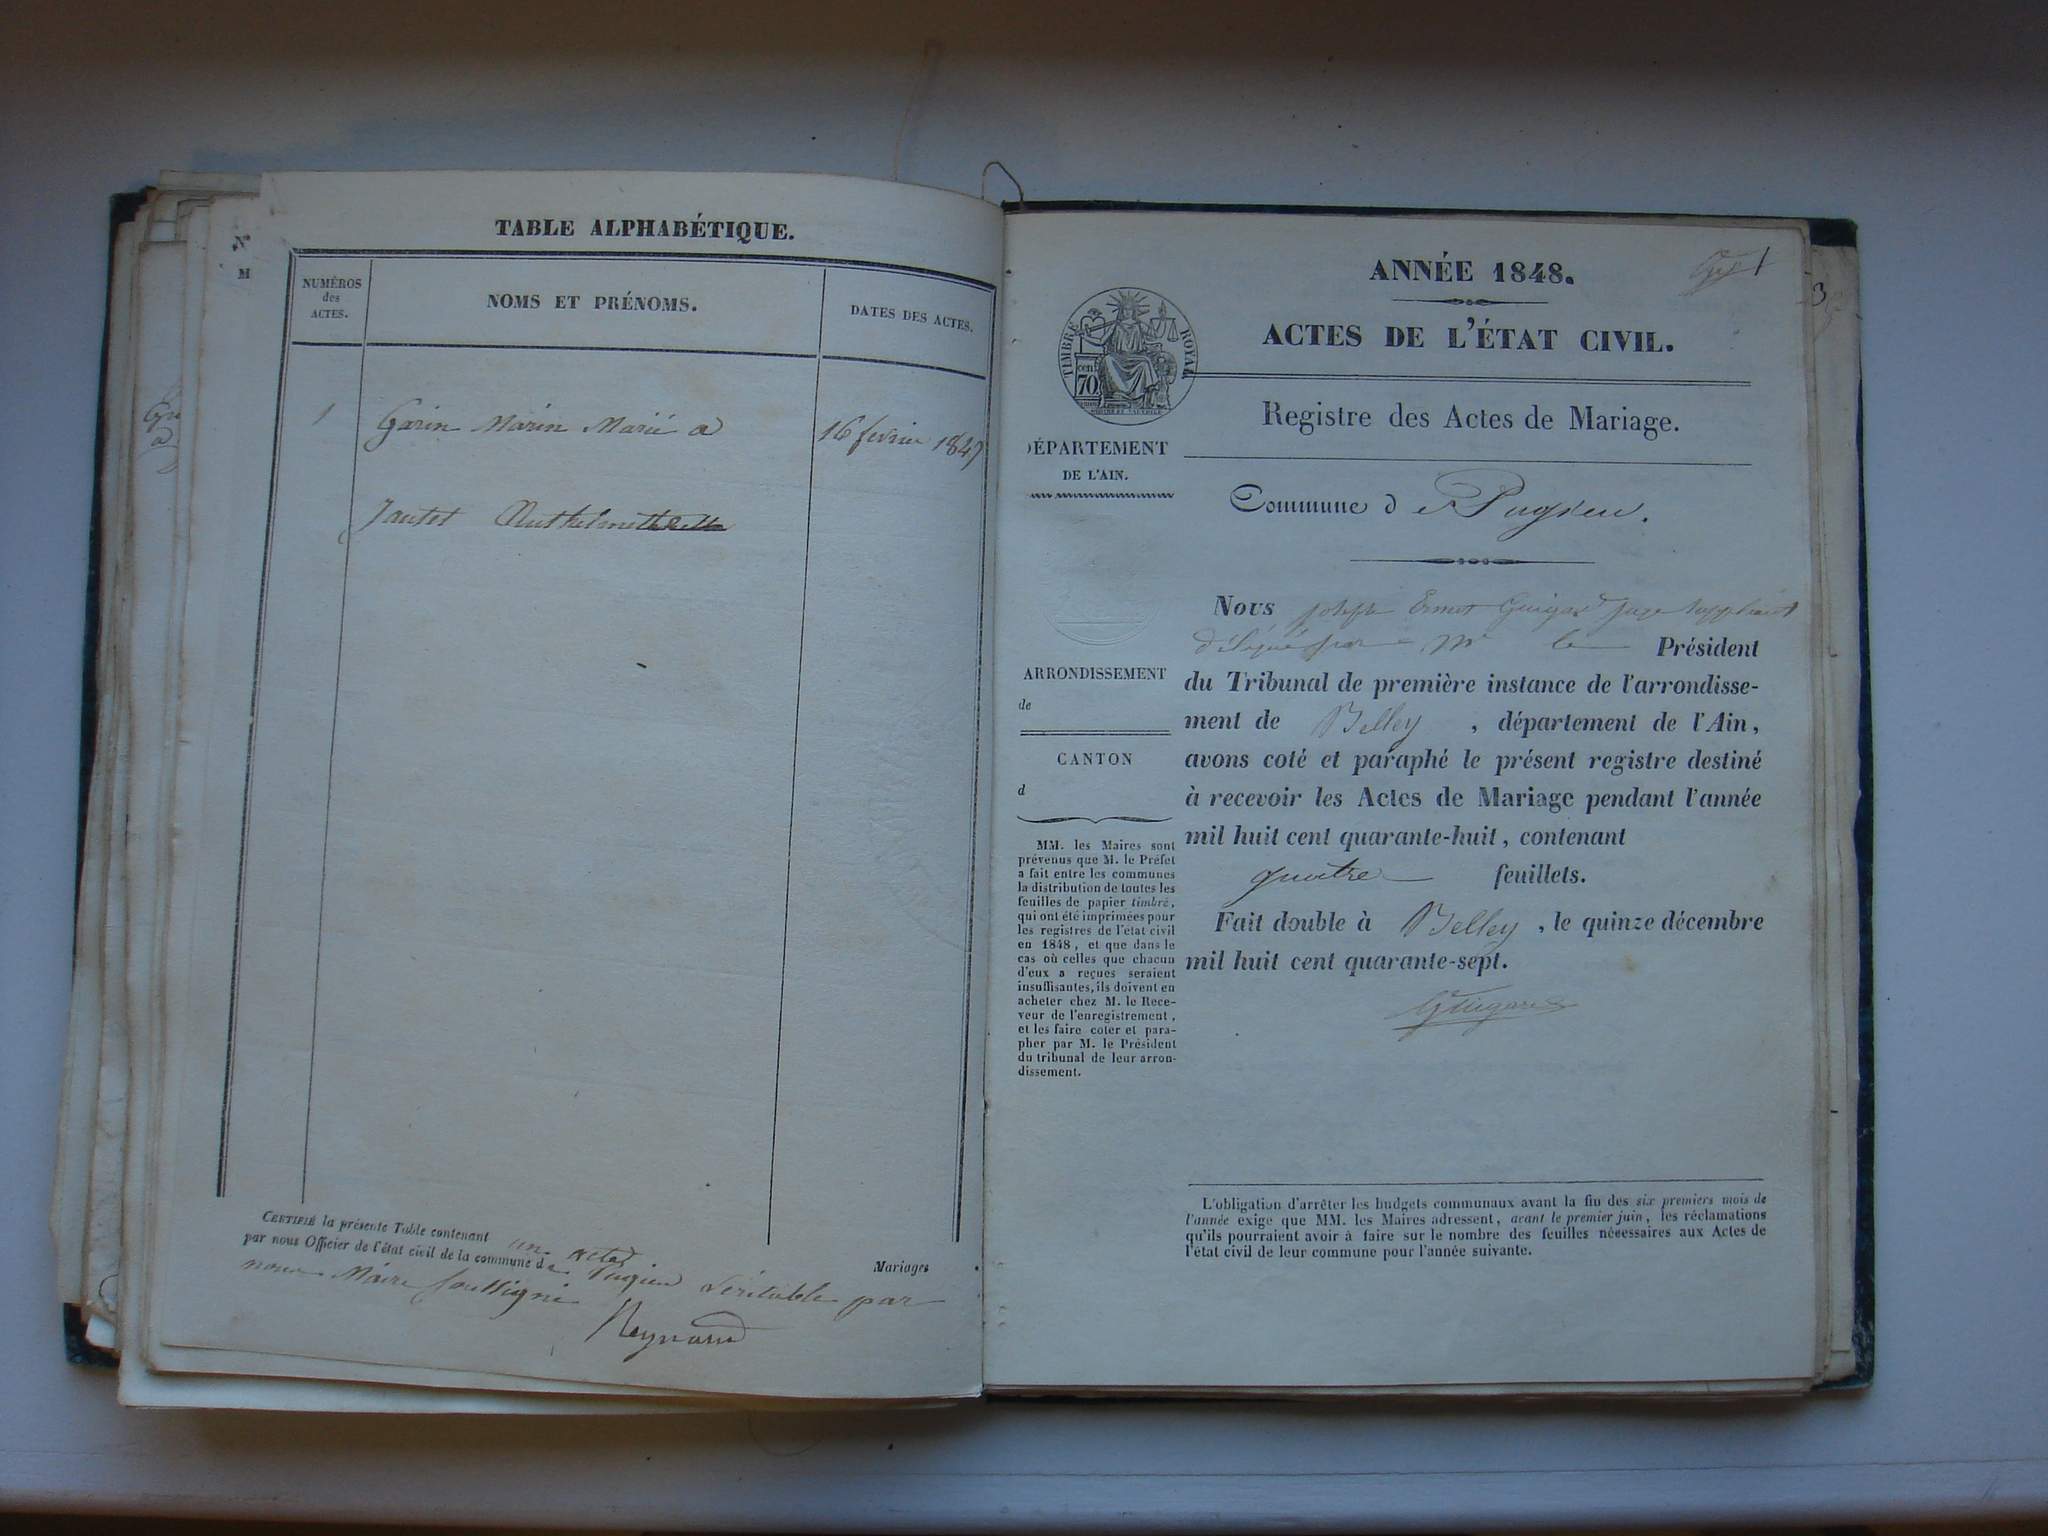 TABLE ALPHABÉTIQUE.
NUMÉROS
des
ACTES.
NOMS ET PRÉNOMS.
DATES DES ACTES.
1
Garin Marin Marié a
16 fevrier 1847
Jantet
CERTIFIÉ la présente Table contenant un acte
par nous Officier de l'état civil de la commune de Pugieu
Mariages
nous Maire soussigné véritable par
Reynaud
1
ANNÉE 1848.
ACTES DE L'ÉTAT CIVIL.
TIMBRE ROYAL
cent
70
Registre des Actes de Mariage.
DÉPARTEMENT
DE L'AIN.
Commune de Pugieu.
ARRONDISSEMENT
de
CANTON
d
MM. les Maires sont
prévenus que M. le Préfet
a fait entre les communes
la distribution de toutes les
feuilles de papier timbré,
qui ont été imprimées pour
les registres de l'état civil
en 1848, et que dans le
cas où celles que chacun
d'eux a reçues seraient
insuffisantes, ils doivent en
acheter chez M. le Rece-
veur de l'enregistrement,
et les faire coter et para-
pher par M. le Président
du tribunal de leur arron-
dissement.
Nous Joseph Ernest Guigard juge suppléant
délégué par Mr le Président
du Tribunal de première instance de l'arrondisse-
ment de Belley, département de l'Ain,
avons coté et paraphé le présent registre destiné
à recevoir les Actes de Mariage pendant l'année
mil huit cent quarante-huit, contenant
quatre feuillets.
Fait double à Belley, le quinze décembre
mil huit cent quarante-sept.
Guigard
L'obligation d'arrêter les budgets communaux avant la fin des six premiers mois de
l'année exige que MM. les Maires adressent, avant le premier juin, les réclamations
qu'ils pourraient avoir à faire sur le nombre des feuilles nécessaires aux Actes de
l'état civil de leur commune pour l'année suivante.
3